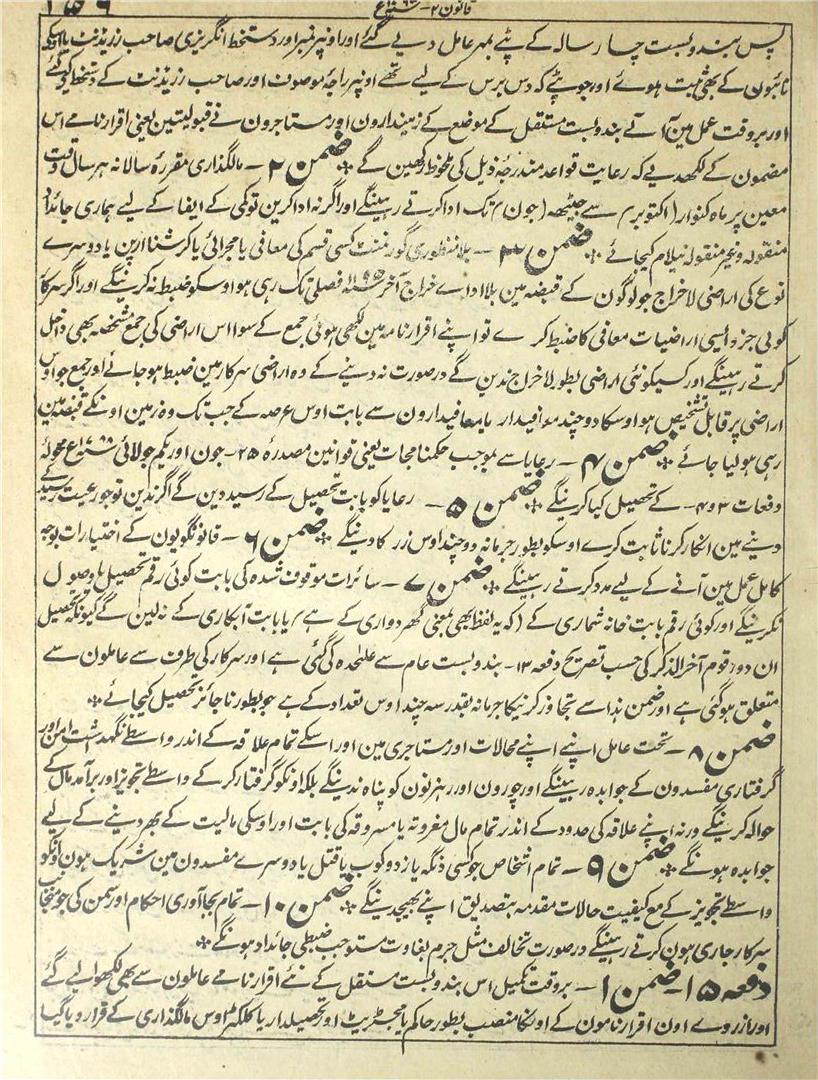 قانون ۲ - ۱۷۹۵ع
پس بندوبست چار سالہ کے پٹے بمہر عامل دیے گئے اور اونپر نمبر اور دستخط انگریزی صاحب رزیڈنٹ یا اونکے
نائبون کے بھی ثبت ہوئے اور جو پٹے کہ دس برس کے لیے تھے اونپر راجہ موصوف اور صاحب رزیڈنٹ کے دستخط کیے گئے
اور بروقت عمل مین آنے بندوبست مستقل کے موضع کے زمیندارون اور مستاجرون نے قبولیتین یعنی اقرارنامے اس
مضمون کے لکھدیے کہ رعایت قواعد مندرجۂ ذیل کی ملحوظ رکھین گے ضمن ۲ - مالگذاری مقررہ سالانہ ہر سال وقت
معین پر ماہ کنوار (اکتوبر) سے جیٹھ (جون) تک ادا کرتے رہینگے اور اگر نہ ادا کرین تو کمی کے ایفا کے لیے ہماری جائداد
منقولہ وغیر منقولہ نیلام کیجائے ضمن ۳ - بلا منظوری گورنمنٹ کسی قسم کی معافی یا مجرائی یا کرشنا ارپن یا دوسرے
نوع کی اراضی لاخراج جو لوگون کے قبضہ مین بلا اداے خراج آخر فصلی تک رہی ہو اوسکو ضبط نکرینگے اور اگر سرکار
کوئی جزو ایسی اراضیات معافی کا ضبط کرے تو اپنے اقرارنامہ مین لکھی ہوئی جمع کے سوا اس اراضی کی جمع مشخصہ بھی داخل
کرتے رہینگے اور کسیکو نئی اراضی بطور لاخراج ندین گے درصورت نہ دینے کے وہ اراضی سرکار مین ضبط ہوجائے اور جمع جو اوس
اراضی پر قابل تشخیص ہو اوسکا دوچند معافیدار یا معافیدارون سے بابت اوس عرصہ کے جب تک وہ زمین اونکے قبضہ مین
رہی ہو لیا جائے ضمن ۴ - رعایا سے بموجب حکمنامجات یعنی قوانین مصدرۂ ۲۵ - جون اور یکم جولائی ۱۷۸۹ع محولہ
دفعات ۳ و ۴ - کے تحصیل کیا کرینگے ضمن ۵ - رعایا کو بابت تحصیل کے رسید دین گے اگر ندین تو جو رعیت رسید کے
دینے مین انکار کرنا ثابت کرے اوسکو بطور جرمانہ دوچند اوس زر کا دینگے ضمن ۶ - قانونگویون کے اختیارات بوجہ
کامل عمل مین آنے کے لیے مدد کرتے رہینگے ضمن ۷ - سائرات موقوف شدہ کی بابت کوئی رقم تحصیل یا وصول
نکرینگے اور کوئی رقم بابت خانہ شماری کے (کہ یہ لفظ بھی بمعنی گھردواری کے ہے) یا بابت آبکاری کے نہ لین گے کیونکہ تحصیل
ان دو رقوم آخرالذکر کی حسب تصریح دفعہ ۱۳ - بندوبست عام سے علٰحدہ کی گئی ہے اور سرکار کی طرف سے عاملون سے
متعلق ہوگئی ہے اور ضمن ہذا سے تجاوز کرنیکا جرمانہ بقدر سہ چند اوس تعداد کے ہے جو بطور ناجائز تحصیل کیجائے
ضمن ۸ - تحت عامل اپنے اپنے محالات اور مستاجری مین اور اسکے تمام علاقہ کے اندر واسطے نگہداشت امن اور
گرفتاری مفسدون کے جوابدہ رہینگے اور چورون اور رہزنون کو پناہ ندینگے بلکہ اونکو گرفتار کرکے واسطے تجویز اور برآمد مال کے
حوالہ کرینگے ورنہ اپنے علاقہ کی حدود کے اندر تمام مال مغروتہ یا مسروقہ کی بابت اور اوسکی مالیت کے بھر دینے کے لیے
جوابدہ ہونگے ضمن ۹ - تمام اشخاص جو کسی دنگہ یا زدوکوب یا قتل یا دوسرے مفسدون مین شریک ہون اونکو
واسطے تجویز کے مع کیفیت حالات مقدمہ بتصدیق اپنے بھیجدینگے ضمن ۱۰ - تمام بجاآوری احکام اور سمن کی جو منجانب
سرکار جاری ہون کرتے رہینگے درصورت تخالف مثل جرم بغاوت مستوجب ضبطی جائداد ہونگے
دفعہ ۱۵ - ضمن ۱ - بروقت تکمیل اس بندوبست مستقل کے نئے اقرارنامے عاملون سے بھی لکھوالیے گئے
اور ازروے اون اقرارنامون کے اونکا منصب بطور حاکم یا مجسٹریٹ اور تحصیلدار یا کلکٹر اوس مالگذاری کے قرار دیا گیا